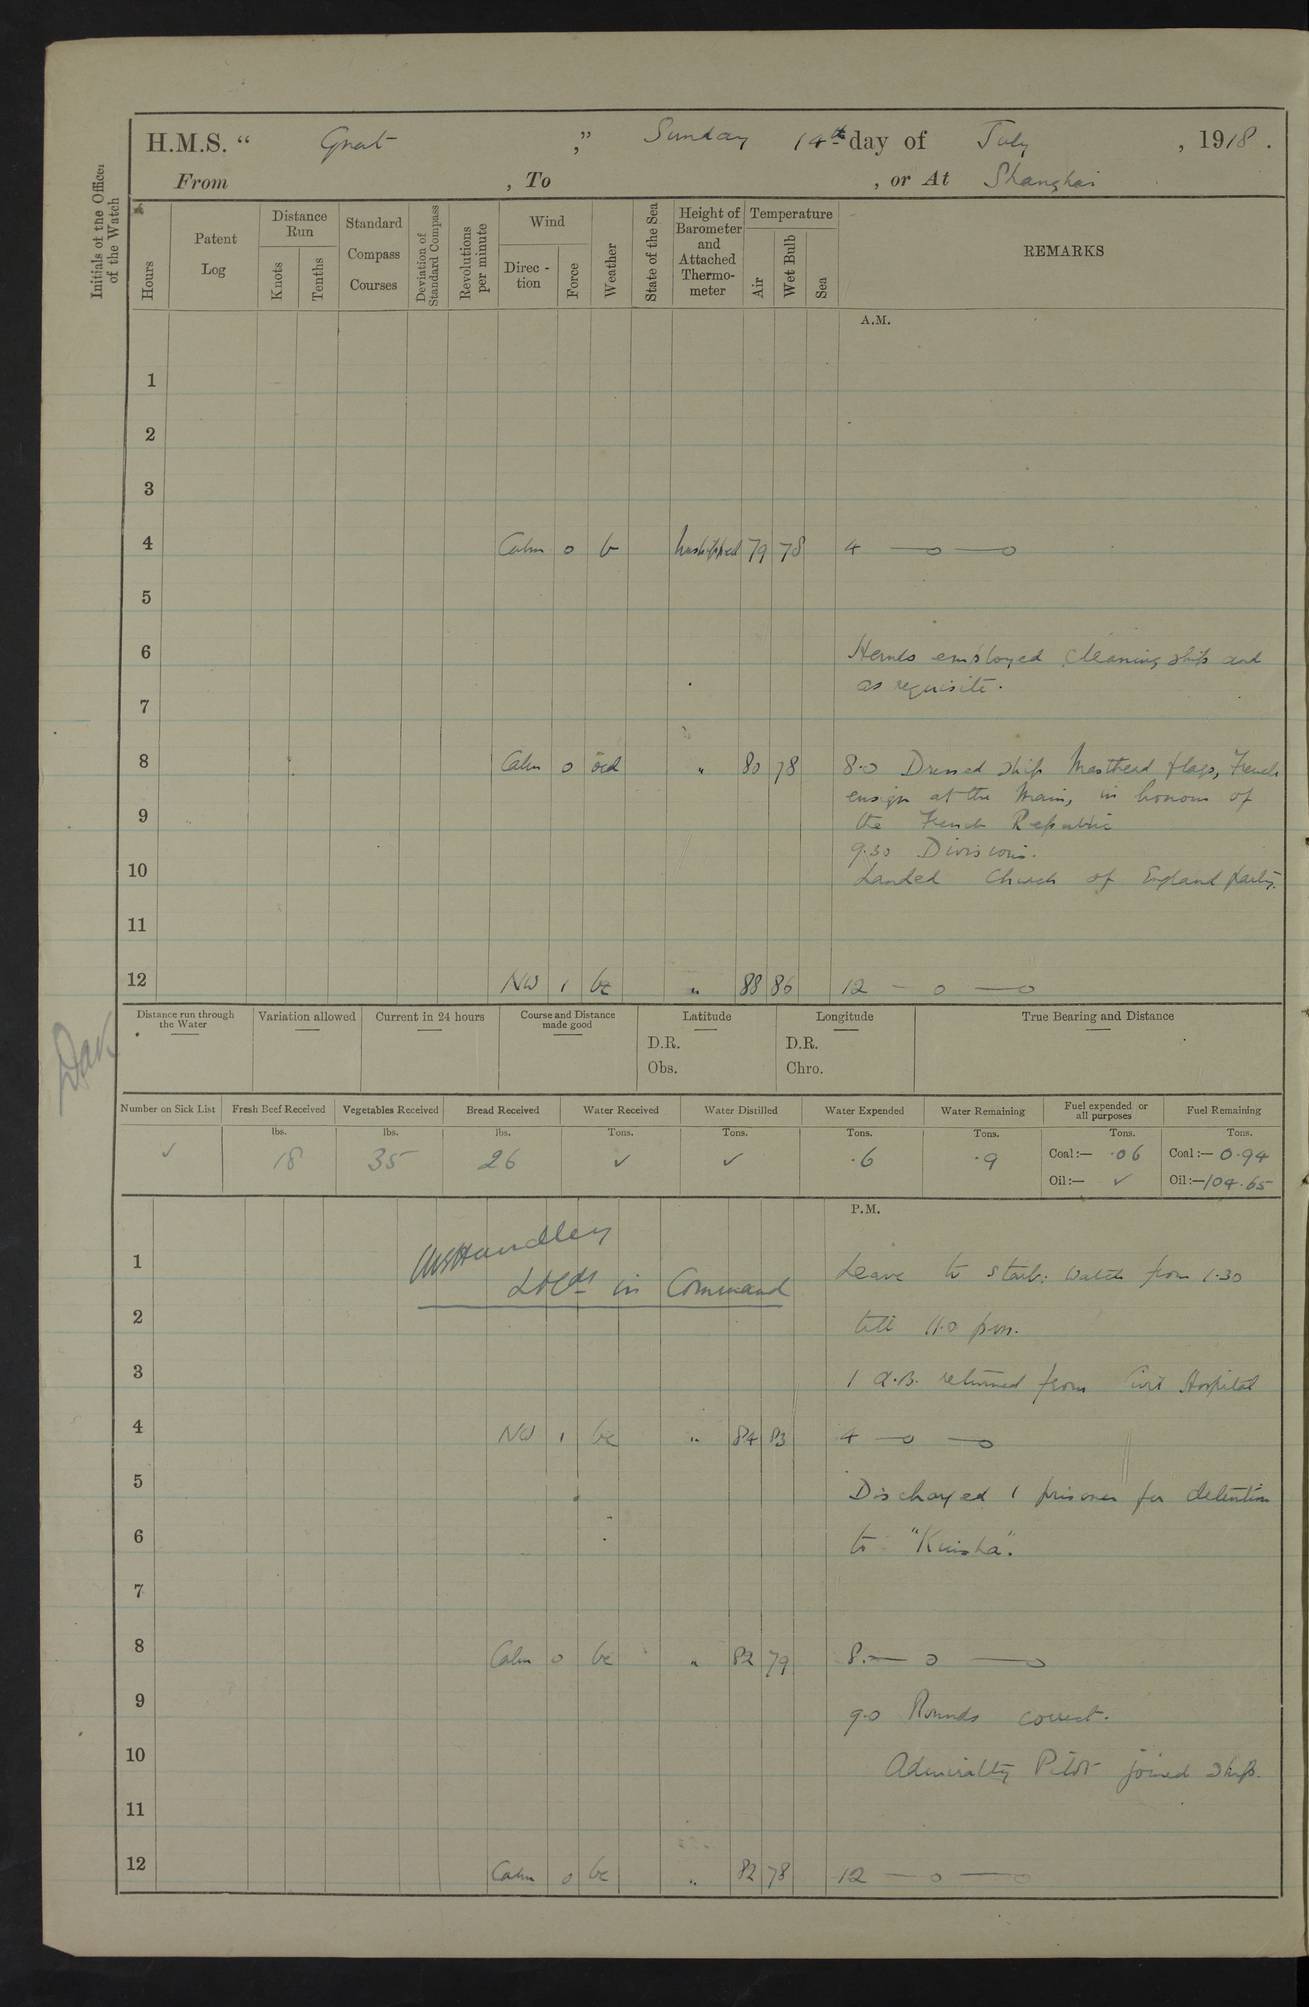 H.M.S. “ Gnat ,” Sunday 14th day of July , 1918 .
From , To , or At Shanghai
Initials of the Officer of the Watch
Hours
Patent Log
Distance Run
Knots
Tenths
Standard Compass Courses
Deviation of Standard Compass
Revolutions per minute
Wind
Direc - tion
Force
Weather
State of the Sea
Height of Barometer and Attached Thermo- meter
Temperature
Air
Wet Bulb
Sea
REMARKS
A.M.
1
2
3
4 Calm 0 b Unshipped 79 78 4 —o —o
5
6 Hands employed cleaning ship and
as requisite.
7
8 Calm 0 ocd " 80 78 8.0 Dressed ship Masthead flags, French
ensign at the Main, in honour of
9 the French Republic
9.30 Divisions.
10 Landed Church of England party.
11
12 NW 1 bc " 88 86 12 — o —o
Distance run through the Water
Variation allowed
Current in 24 hours
Course and Distance made good
Latitude
D.R.
Obs.
Longitude
D.R.
Chro.
True Bearing and Distance
Number on Sick List ✓
Fresh Beef Received lbs. 18
Vegetables Received lbs. 35
Bread Received lbs. 26
Water Received Tons. ✓
Water Distilled Tons. ✓
Water Expended Tons. .6
Water Remaining Tons. .9
Fuel expended or all purposes Tons.
Coal:— .06
Oil:— ✓
Fuel Remaining Tons.
Coal:— 0.94
Oil:— 104.65
P.M.
Handley
Lt Cdr in Command
1 Leave to starb: watch from 1.30
2 till 11.0 pm.
3 1 A.B. returned from Civil Hospital
4 NW 1 bc " 84 83 4 —o —o
5 Discharged 1 prisoner for detention
6 to "Kinsha".
7
8 Calm 0 bc " 82 79 8.— o —o
9 9.0 Rounds correct.
10 Admiralty Pilot joined ship.
11
12 Calm 0 bc " 82 78 12 — o —o